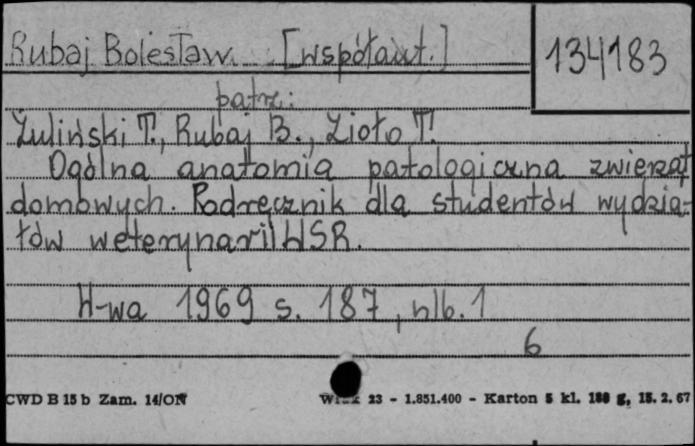 Rubaj Bolesław. [współaut.]
134183
patrz:
Żuliński T., Rubaj B., Zioło T.
Ogólna anatomia patologiczna zwierząt
domowych. Podręcznik dla studentów wydzia-
łów weterynarii WSR.
W-wa 1969 s. 187, nlb. 1
6
CWD B 15 b Zam. 14/ON
23 - 1.851.400 - Karton 5 kl. g, 15. 2. 67